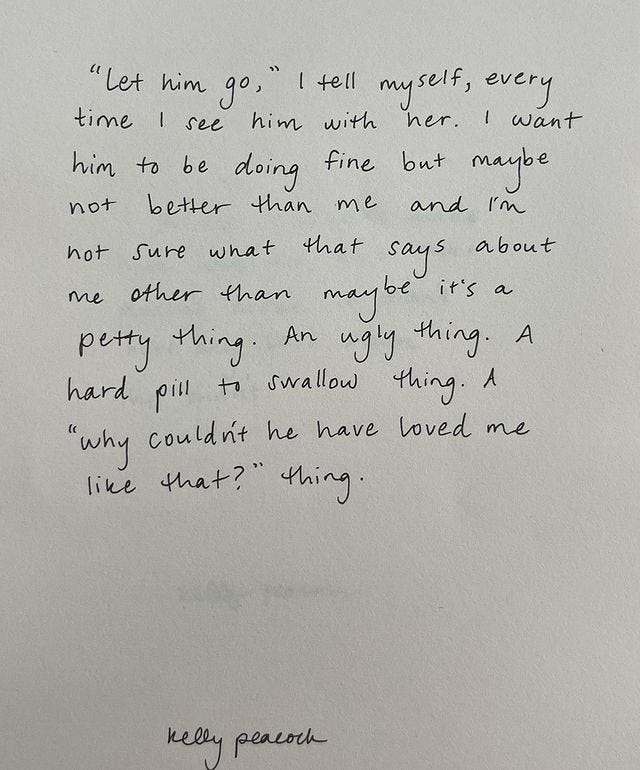 "Let him go," I tell myself, every
time I see him with her. I want
him to be doing fine but maybe
not better than me and I'm
not sure what that says about
me other than maybe it's a
petty thing. An ugly thing. A
hard pill to swallow thing. A
"why couldn't he have loved me
like that?" thing.
kelly peacock